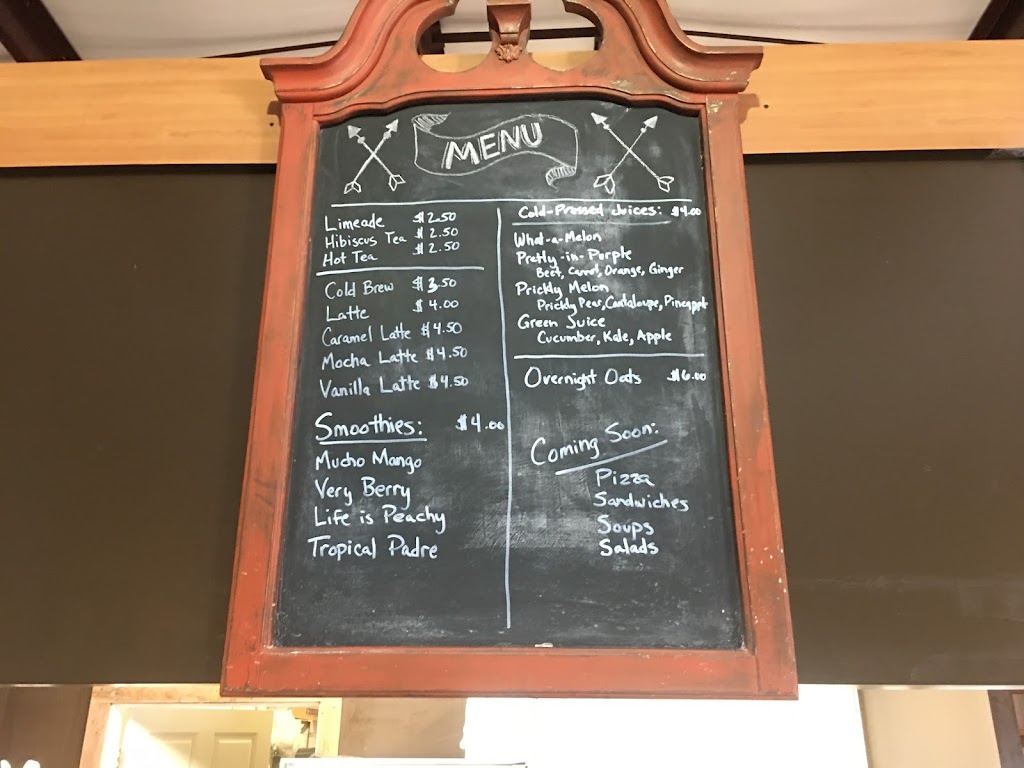 MENU
Limeade $2.50
Hibiscus Tea $2.50
Hot Tea $2.50
Cold Brew $3.50
Latte $4.00
Caramel Latte $4.50
Mocha Latte $4.50
Vanilla Latte $4.50
Smoothies: $4.00
Mucho Mango
Very Berry
Life is Peachy
Tropical Padre
Cold-Pressed Juices: $4.00
What-a-Melon
Pretty-in-Purple
Beet, Carrot, Orange, Ginger
Prickly Melon
Prickly Pear, Cantaloupe, Pineapple
Green Juice
Cucumber, Kale, Apple
Overnight Oats $6.00
Coming Soon:
Pizza
Sandwiches
Soups
Salads